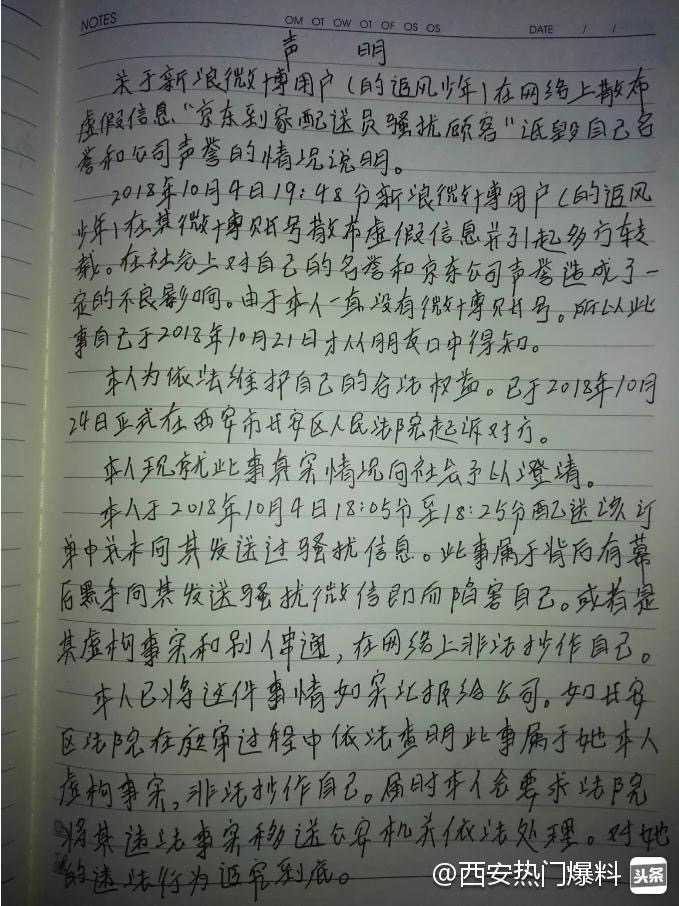 NOTES
OM OT OW OT OF OS OS
DATE / /
声 明
关于新浪微博用户(的追风少年)在网络上散布
虚假信息"京东到家配送员骚扰顾客"诋毁自己名
誉和公司声誉的情况说明。
2018年10月4日19:48分新浪微博用户(的追风
少年)在其微博账号散布虚假信息并引起多方转
载。在社会上对自己的名誉和京东公司声誉造成了一
定的不良影响。由于本人一直没有微博账号。所以此
事自己于2018年10月21日才从朋友口中得知。
本人为依法维护自己的合法权益。已于2018年10月
24日正式在西安市长安区人民法院起诉对方。
本人现就此事真实情况向社会予以澄清。
本人于2018年10月4日18:05分至18:25分配送该订
单中并未向其发送过骚扰信息。此事属于背后有幕
后黑手向其发送骚扰微信即而陷害自己。或者是
其虚构事实和别人串通,在网络上非法抄作自己。
本人已将这件事情如实汇报给公司。如长安
区法院在庭审过程中依法查明此事属于她本人
虚构事实,非法抄作自己。届时本人会要求法院
将其违法事实移送公安机关依法处理。对她
的违法行为追究到底。
@西安热门爆料 头条